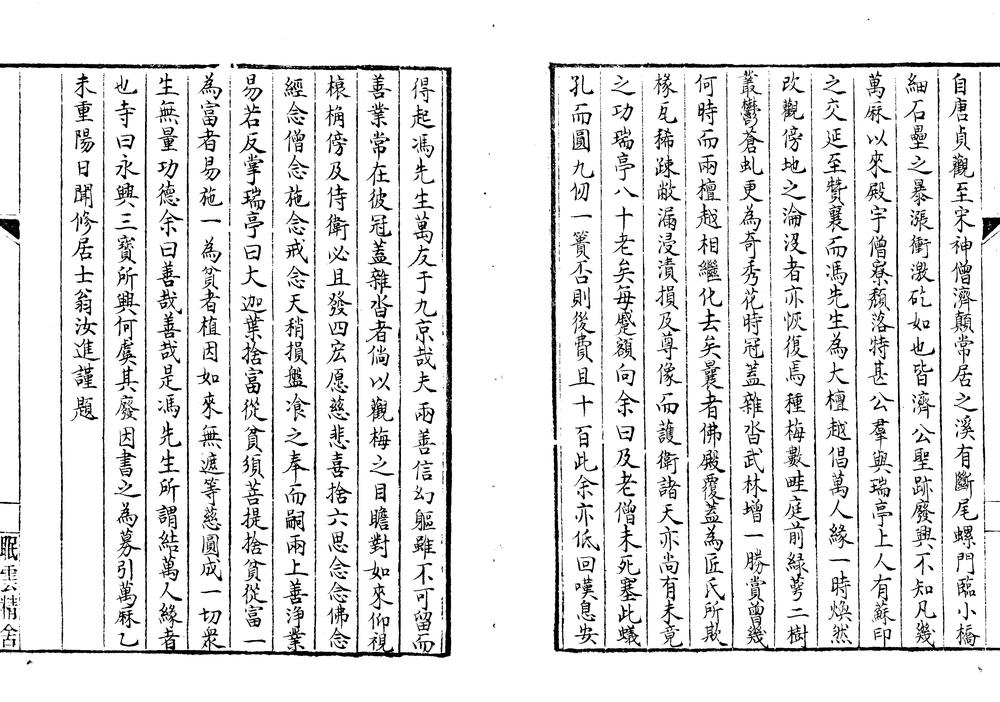 自唐貞觀至宋神僧濟顛常居之溪有斷尾螺門臨小橋
細石壘之暴漲衝激矻如也皆濟公聖跡廢興不知凡幾
萬厤以來殿宇僧寮頹落特甚公羣與瑞亭上人有蘇印
之交延至贊襄而馮先生為大檀越倡萬人緣一時煥然
改觀傍地之淪沒者亦恢復焉種梅數畦庭前緑萼二樹
叢鬱蒼虬更為奇秀花時冠蓋雜沓武林增一勝賞曾幾
何時而兩檀越相繼化去矣曩者佛殿覆蓋為匠氏所欺
椽瓦稀疎敝漏浸漬損及尊像而護衛諸天亦尚有未竟
之功瑞亭八十老矣每蹙額向余曰及老僧未死塞此蟻
孔而圓九仞一簣否則後費且十百此余亦低回嘆息安
得起馮先生萬友于九京哉夫兩善信幻軀雖不可留而
善業常在彼冠蓋雜沓者倘以觀梅之目瞻對如來仰視
榱桷傍及侍衛必且發四宏愿慈悲喜捨六思念念佛念
經念僧念施念戒念天稍損盤飡之奉而嗣兩上善淨業
易若反掌瑞亭曰大迦葉捨富從貧須菩提捨貧從富一
為富者易施一為貧者植因如來無遮等慈圓成一切衆
生無量功德余曰善哉善哉是馮先生所謂結萬人緣者
也寺曰永興三寳所興何虞其廢因書之為募引萬厤乙
未重陽日聞修居士翁汝進謹題
眠雲精舍